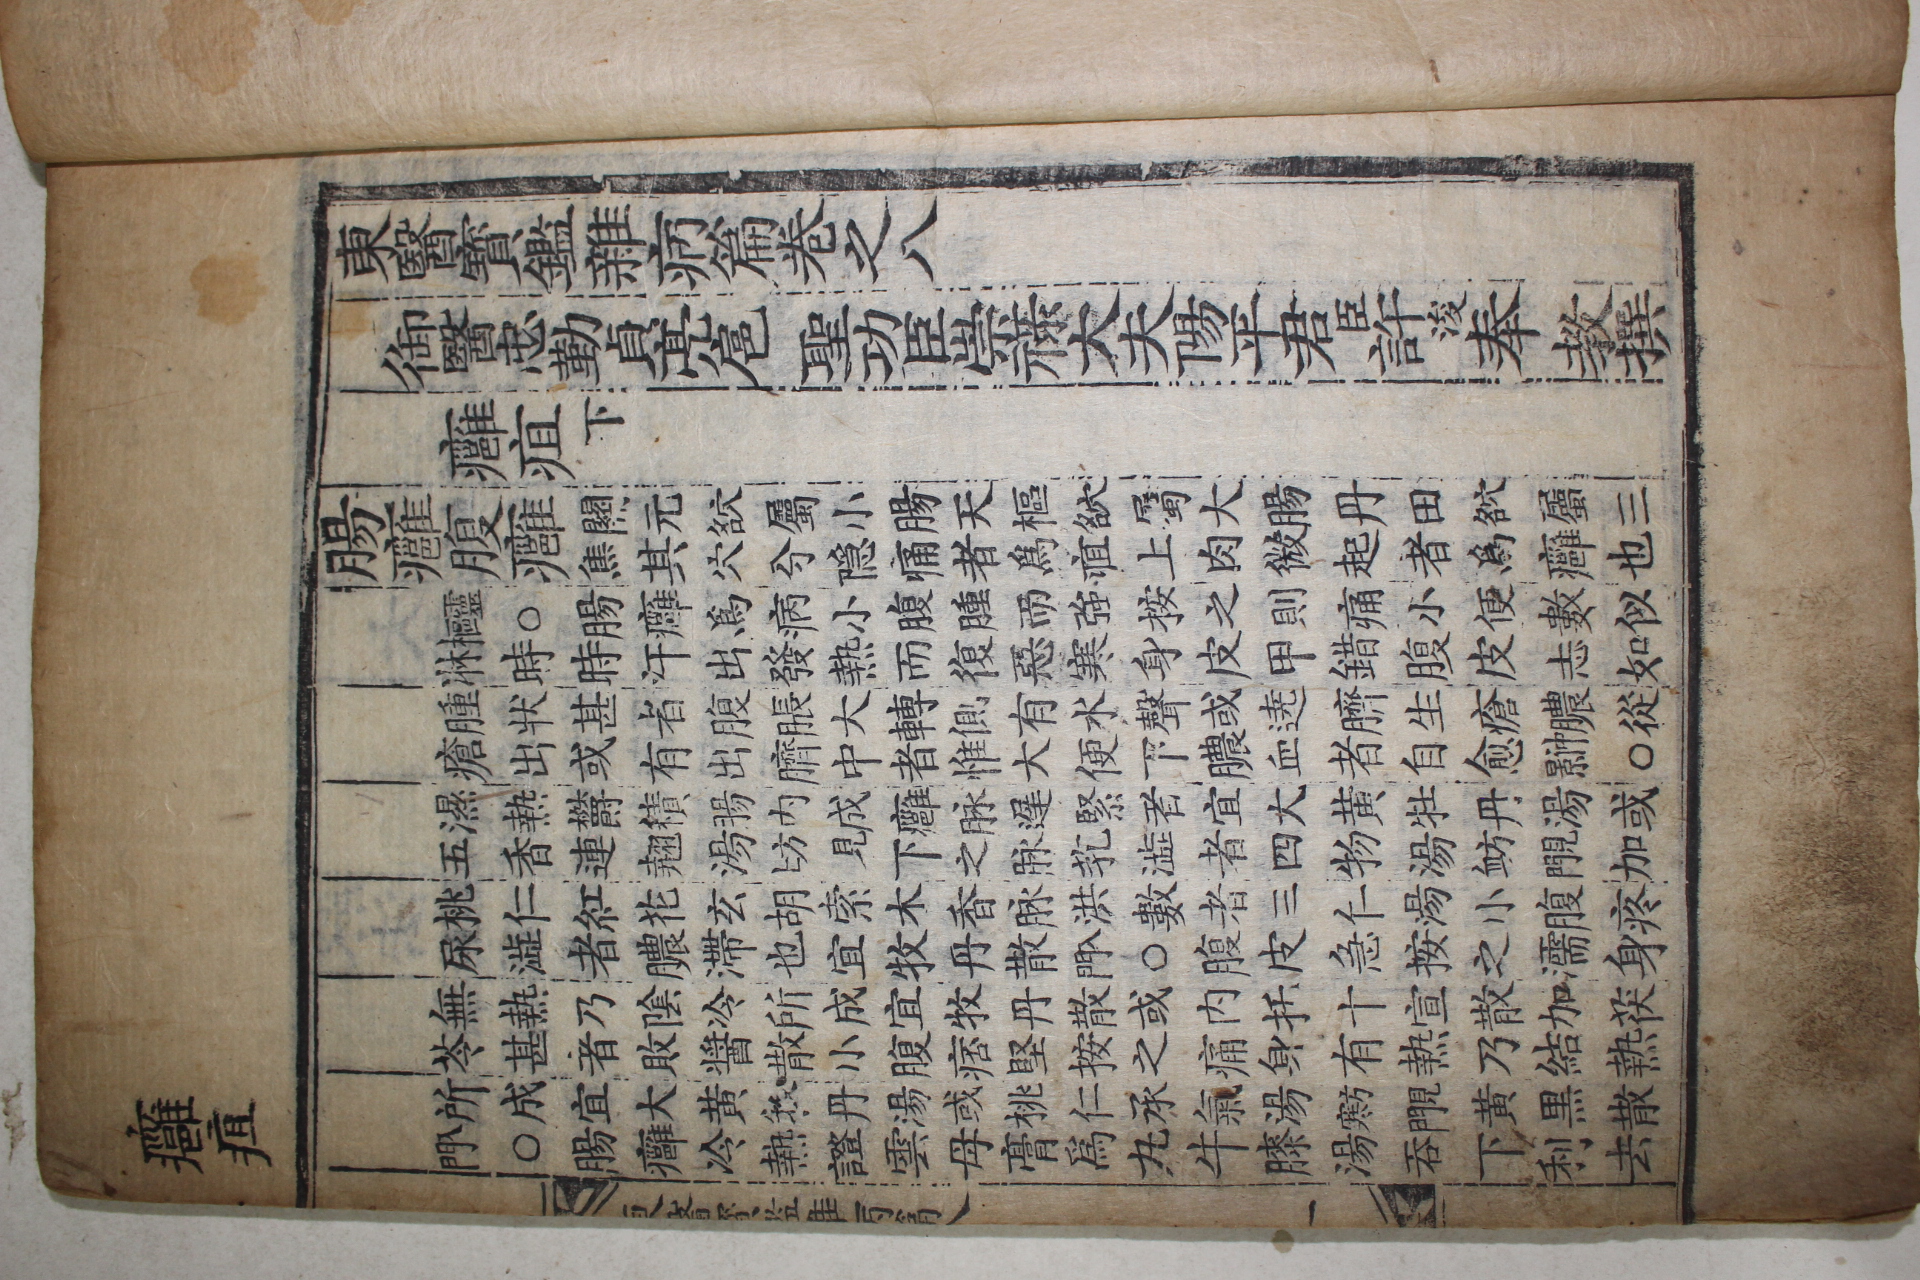 癰疽
東醫寶鑑雜病篇卷之八
御醫忠勤貞亮扈聖功臣崇祿大夫陽平君臣許浚奉教撰
癰疽下
腸癰腹癰
關元穴屬小腸天樞穴屬大腸丹田穴屬三
焦其穴分隱痛者爲疽上肉微起者爲癰也
靈樞○腸癰爲病小腹腫而強按之則痛小便數似
淋時時汗出發熱而復惡寒身皮甲錯腹皮急如
腫狀甚者腹脹大轉側有水聲或遶臍生瘡膿從
瘡出或有出臍中者惟大便下膿血者自愈○
濕熱欝積腸內成癰脉遲緊者宜大黃牡丹湯或
五香連翹湯方見下之脉芤澁者四物湯方見血門加
桃仁紅花玄胡索木香脉洪數者三仁湯小腹疼
尿澁者膿滯也宜牧丹散入門○腹皮急按之濡身
無熱乃陰冷所成宜牧丹散或內托十宣散加茯
苓甚者敗醬散小腹痞堅按之痛身有熱乃結熱
所成宜大黃湯或桃仁承氣湯方見寒門黃黑散
入門○腸癰冷熱證雲母膏爲丸牛膝湯呑下利去
東醫寶鑑雜病篇八
一